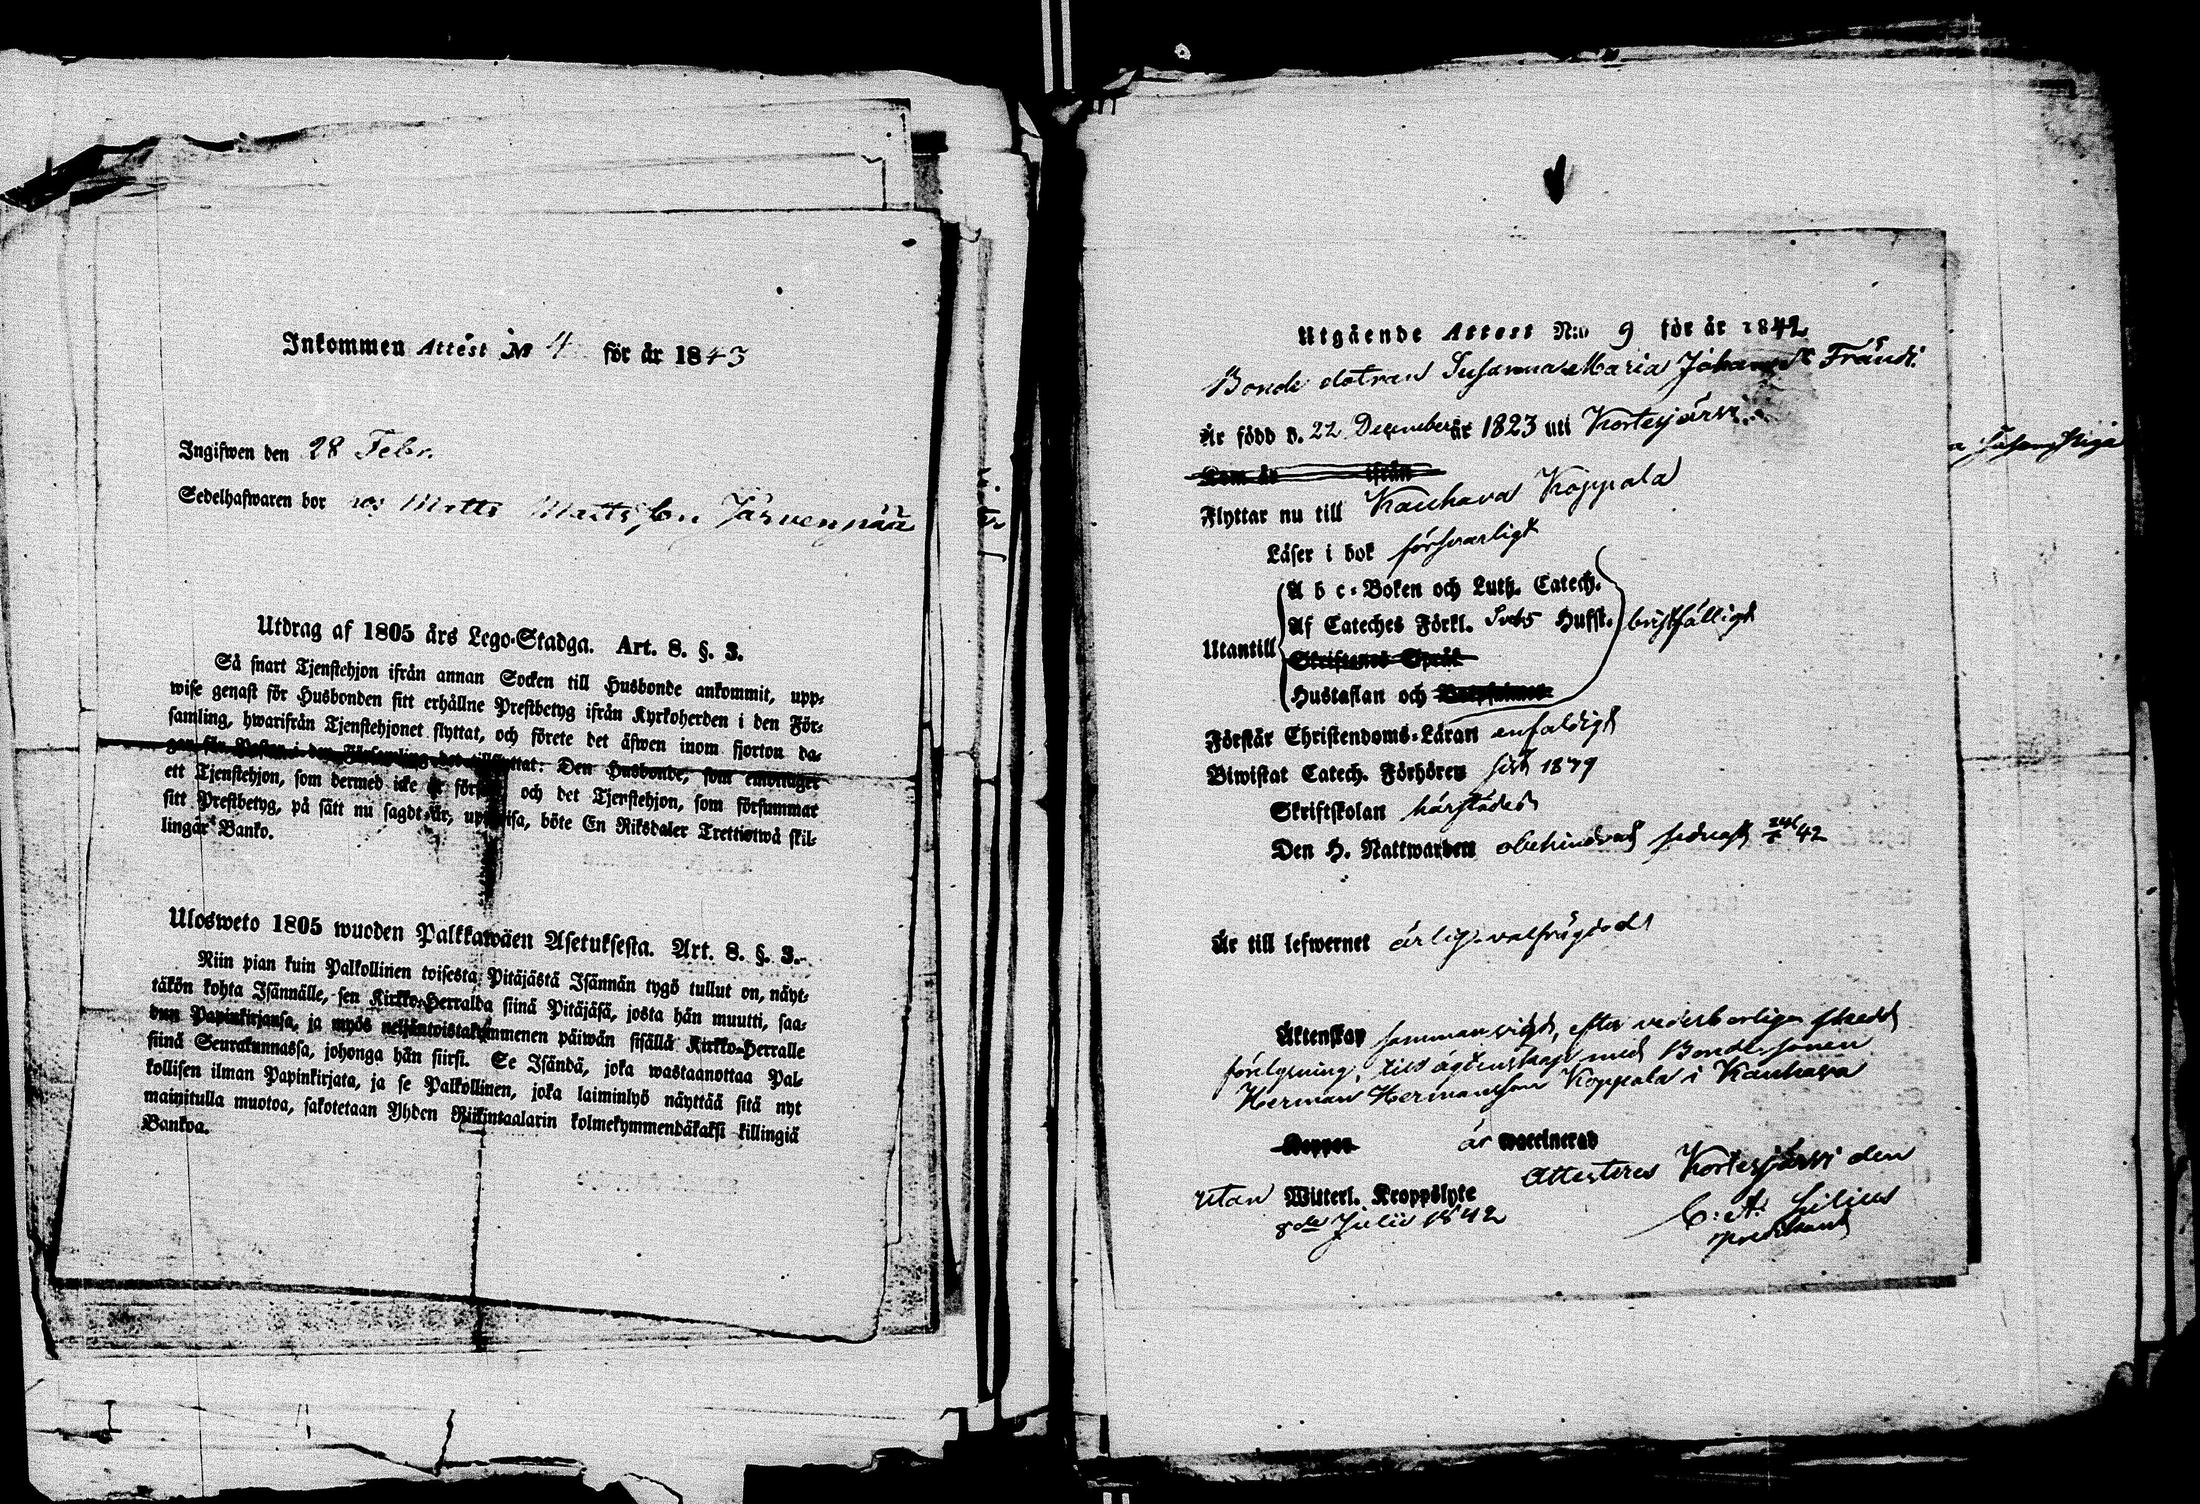 Inkommen Attest № 4 för år 1843
Ingifwen den 28 Febr.
Sedelhafwaren bor hos Matts Mattsson Järvenpää
Utdrag af 1805 års Lego-Stadga. Art. 8. §. 3.
Så snart Tjenstehjon ifrån annan Socken till Husbonde ankommit, upp-
wise genast för Husbonden sitt erhållne Prestbetyg ifrån Kyrkoherden i den För-
samling, hwarifrån Tjenstehjonet flyttat, och förete det äfwen inom fjorton da-
gar för Pastor i den Församling det tillflyttat: Den Husbonde, som emottager
ett Tjenstehjon, som dermed icke är försedt och det Tjenstehjon, som försummar
sitt Prestbetyg, på sätt nu sagdt är, uppwisa, böte En Riksdaler Trettiotwå skil-
lingar Banko.
Ulosweto 1805 wuoden Palkkawäen Asetuksesta. Art. 8. §. 3.
Niin pian kuin Palkollinen toisesta Pitäjästä Isännän tygö tullut on, näyt-
täkön kohta Isännälle, sen Kirkko-Herralda siinä Pitäjäsä, josta hän muutti, saa-
dun Papinkirjansa, ja myös neljäntoistakymmenen päiwän sisällä Kirkko-Herralle
siinä Seurakunnassa, johonga hän siirsi. Se Isändä, joka wastaanottaa Pal-
kollisen ilman Papinkirjata, ja se Palkollinen, joka laiminlyö näyttää sitä nyt
mainitulla muotoa, sakotetaan Yhden Riikintaalarin kolmekymmendäkaksi killingiä
Bankoa.
Utgående Attest N:o 9 för år 1842
Bonde dotran Susanna Maria Johansdr Frändi.
Är född d. 22 December år 1823 uti Kortesjärvi
Kom år ifrån
Flyttar nu till Kauhava Koppala
Läser i bok försvarligt
Utantill
A b c-Boken och Luth. Catech.
Af Cateches Förkl. Huffst. bristfälligt
Skriftenes Språk
Hustaflan och
Förstår Christendoms-Läran enfaldigt
Biwistat Catech. Förhören sist
Skriftskolan härstädes
Den H. Nattwarden obehindrad sednast 42
Är till lefwernet ärlig, välfrägdad
Äktenskap sammanvigd, efter vederbörligen skedd
förelysning, till ägtenskap med Bonde sonen
Herman Hermansson Koppala i Kauhava
Koppor är waccinerad
utan Witterl. Kroppslyte Attesteres Kortesjärvi den
8de Julii 1842 C. A. Lilius
predikant